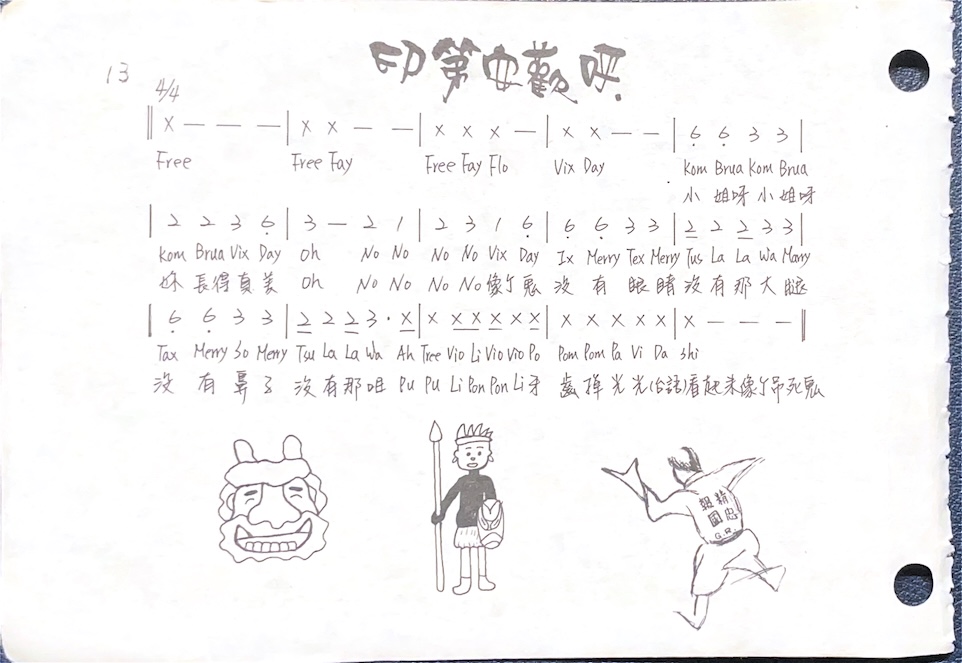 印第安歡呼
13
4/4
‖ X — — — | X X — — | X X X — | X X — — | 6̣ 6̣ 3 3 |
Free Free Fay Free Fay Flo Vix Day Kom Brua Kom Brua
小 姐呀 小 姐呀
| 2 2 3 6̣ | 3 — 2 1 | 2 3 1 6̣ | 6̣ 6̣ 3 3 | 2 2 2 3 3 |
Kom Brua Vix Day Oh No No No No Vix Day Ix Merry Tex Merry Tus La La Wa Marry
妳 長得真美 Oh No No No No 像個鬼 沒 有 眼 睛 沒 有 那 大 腿
| 6̣ 6̣ 3 3 | 2 2 2 3 · X | X X X X X X | X X X X X | X — — — ‖
Tax Merry So Merry Tsu La La Wa Ah Tree Vio Li Vio Vio Po Pom Pom Pa Vi Da shi
沒 有 鼻 子 沒 有 那 咀 Pu Pu Li Pon Pon Li 牙 齒 掉 光 光(台語)看起來像個吊死鬼
精忠
報國
G.R.